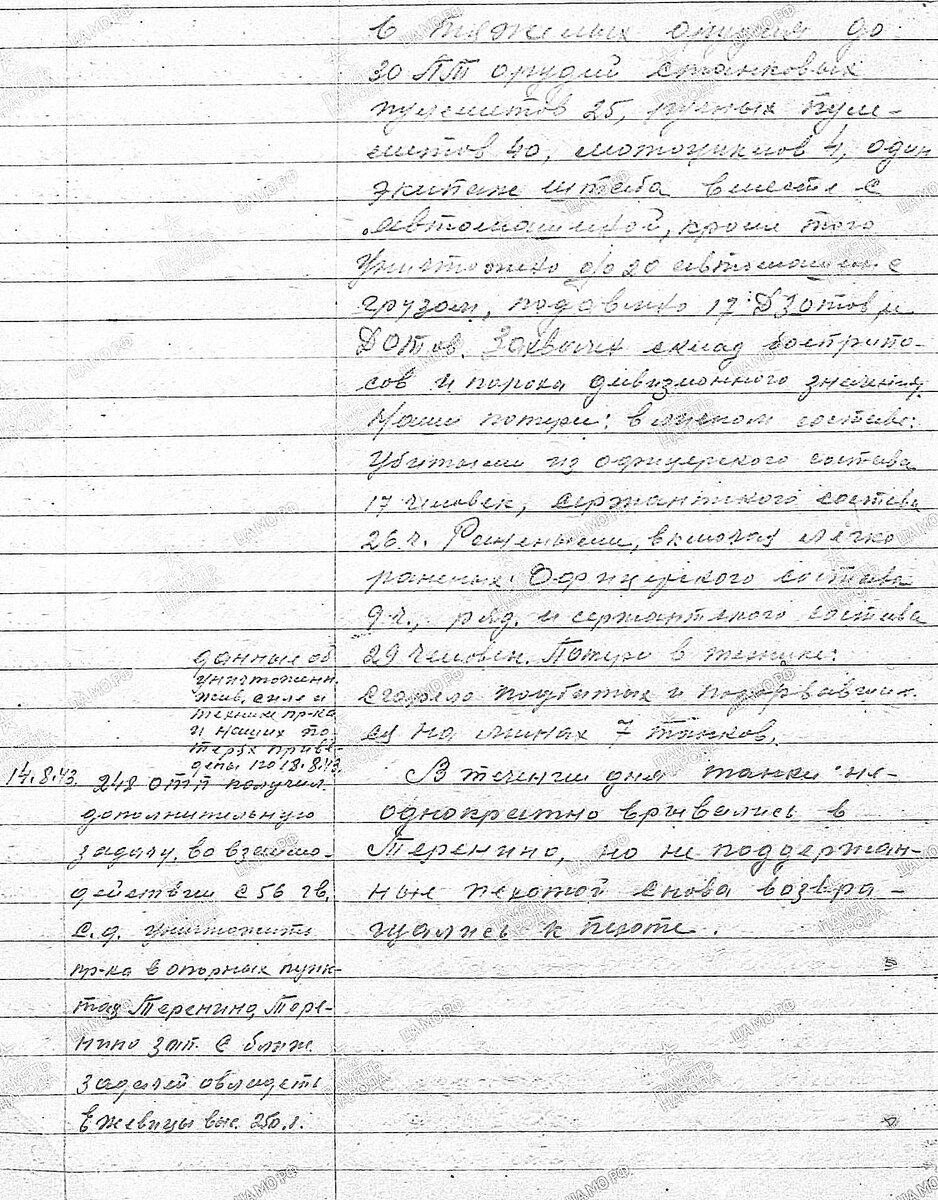 6 тяжелых орудия до
30 ПТ орудий станковых
пулеметов 25, ручных пуле-
метов 40, мотоциклов 4, один
экипаж штаба вместе с
автомашиной, кроме того
Уничтожено до 20 автомашин с
грузом, подавлено 17 ДЗОТов и
ДОТов. Захвачен склад боеприпа-
сов и пороха дивизионного значения.
Наши потери: в личном составе:
Убитыми из офицерского состава
17 человек, сержантского состава
26 ч. Ранеными, включая легко
раненых: Офицерского состава
9 ч., ряд. и сержантского состава
29 человек. Потери в технике:
сгорело подбитых и подорвавших-
ся на минах 7 танков.
данные об
уничтоженн.
жив. силе и
технике пр-ка
и наших по-
терях приве-
дены по 18.8.43.
14.8.43. 248 ОТП получил
дополнительную
задачу, во взаимо-
действии с 56 гв.
с.д. уничтожить
пр-ка в опорных пунк-
тах Теренино, Тере-
нино зап. с ближ.
задачей овладеть
Ежевицы выс. 250.1.
В течении дня танки не-
однократно врывались в
Теренино, но не поддержан-
ные пехотой снова возвра-
щались к пехоте.